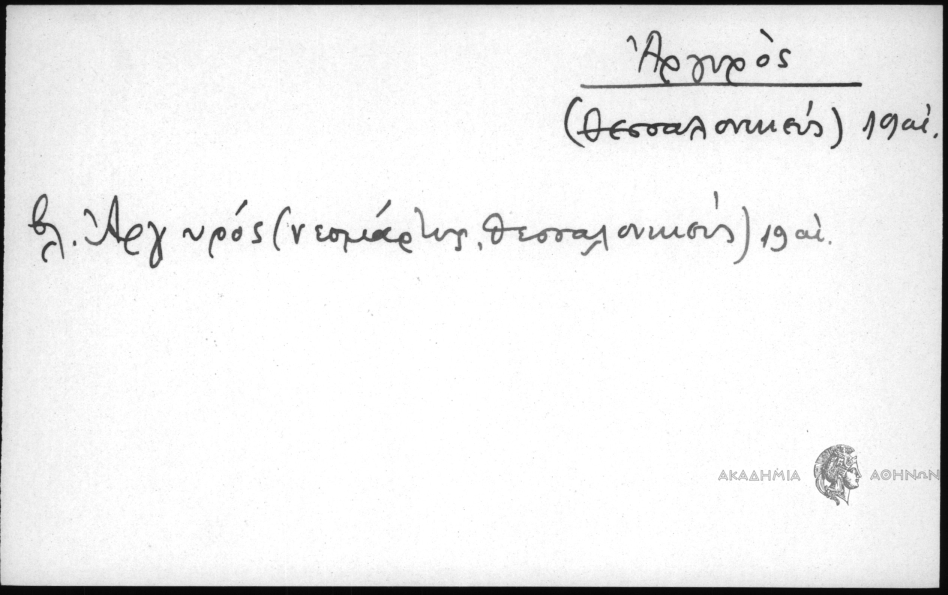 Ἀργυρὸς
(Θεσσαλονικεύς) 19 αἰ.
βλ. Ἀργυρός (νεομάρτυς, Θεσσαλονικεύς) 19 αἰ.
ΑΚΑΔΗΜΙΑ ΑΘΗΝΩΝ